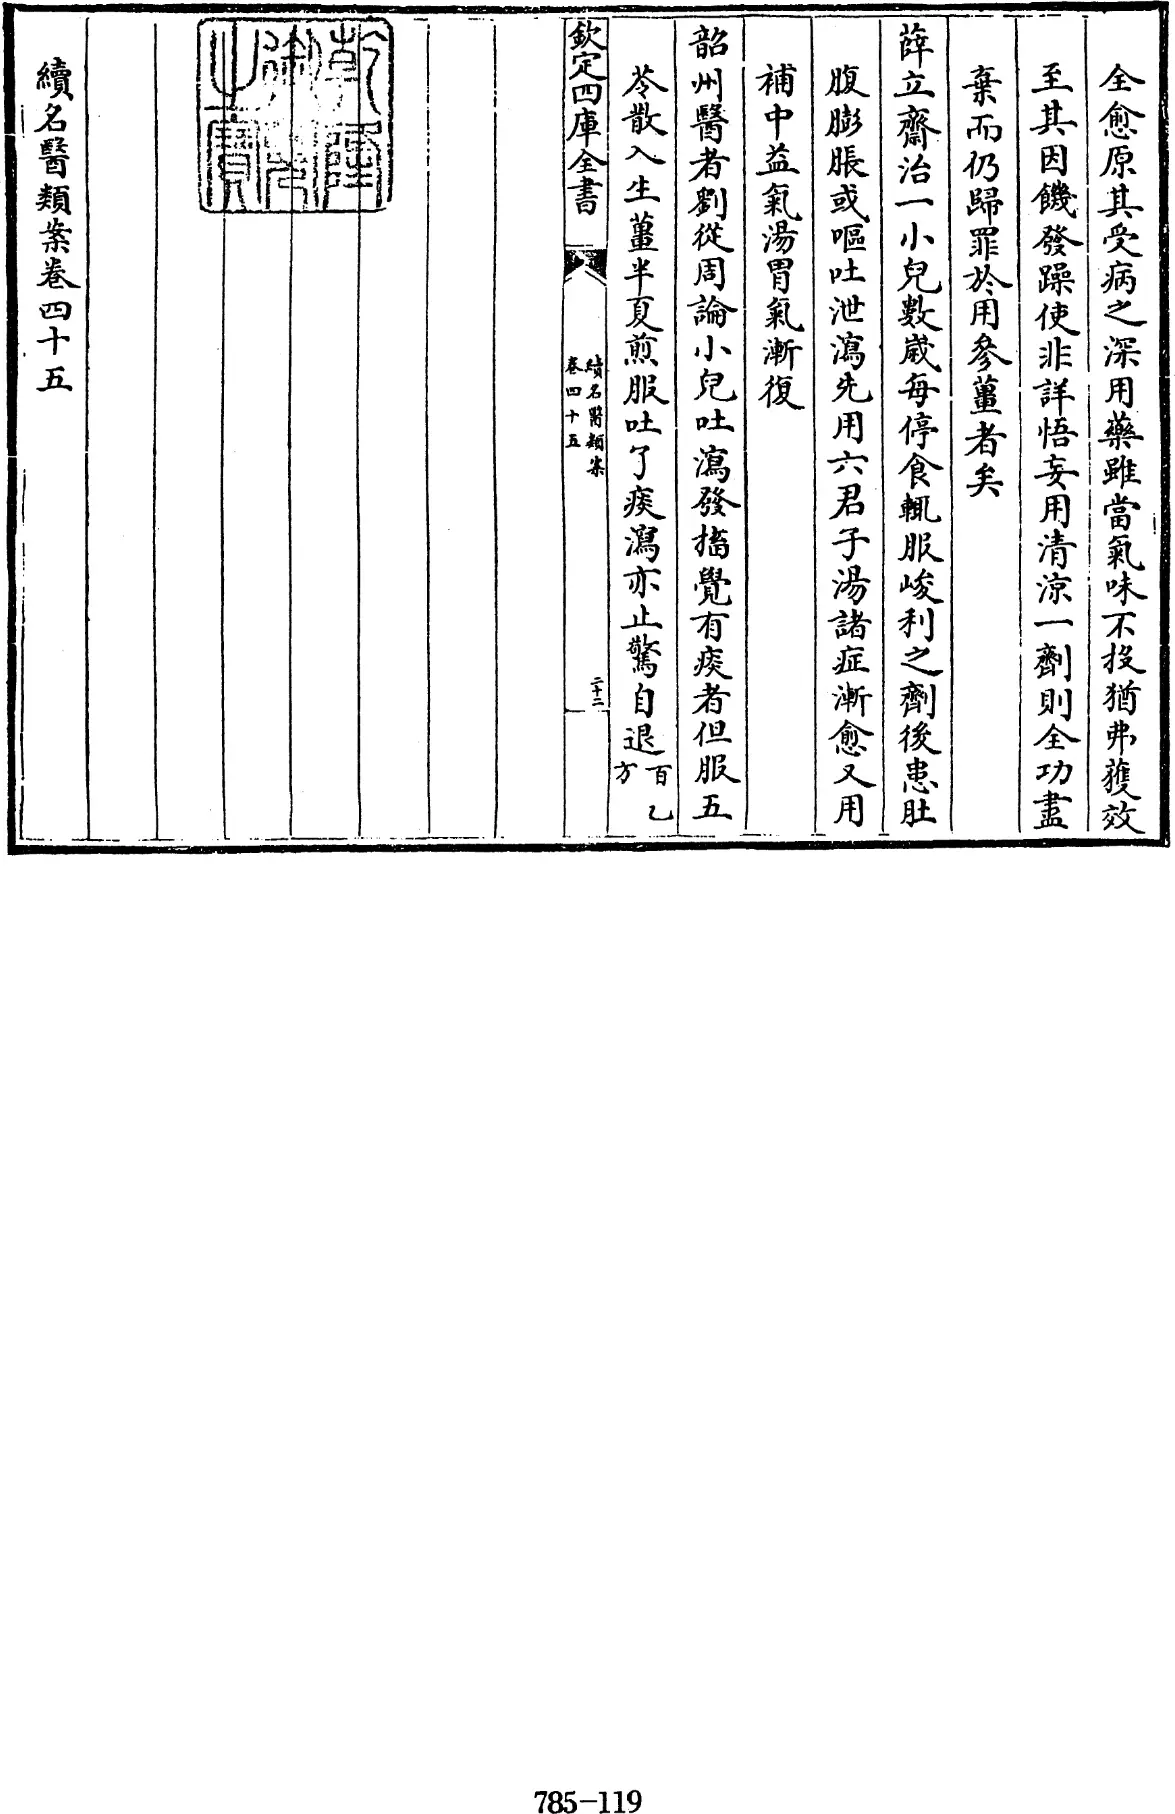 全愈原其受病之深用藥雖當氣味不投猶弗獲效
至其因饑發躁使非詳悟妄用清涼一劑則全功盡
棄而仍歸罪於用參薑者矣
薛立齋治一小兒數歲每停食輒服峻利之劑後患肚
腹膨脹或嘔吐泄瀉先用六君子湯諸症漸愈又用
補中益氣湯胃氣漸復
韶州醫者劉從周論小兒吐瀉發搐覺有痰者但服五
苓散入生薑半夏煎服吐了痰瀉亦止驚自退百乙方
欽定四庫全書
續名醫類案
卷四十五
二十二
乾隆御覽之寶
續名醫類案卷四十五
785-119